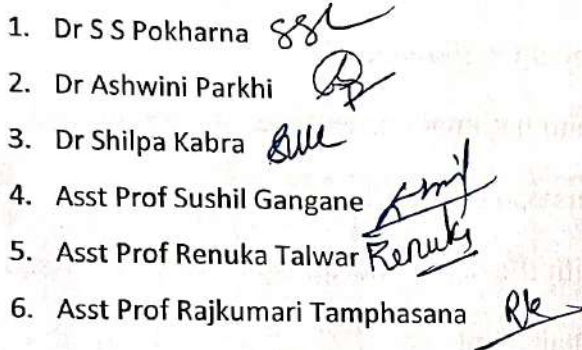 1. Dr S S Pokharna
2. Dr Ashwini Parkhi
3. Dr Shilpa Kabra
4. Asst Prof Sushil Gangane
5. Asst Prof Renuka Talwar Renuka
6. Asst Prof Rajkumari Tamphasana